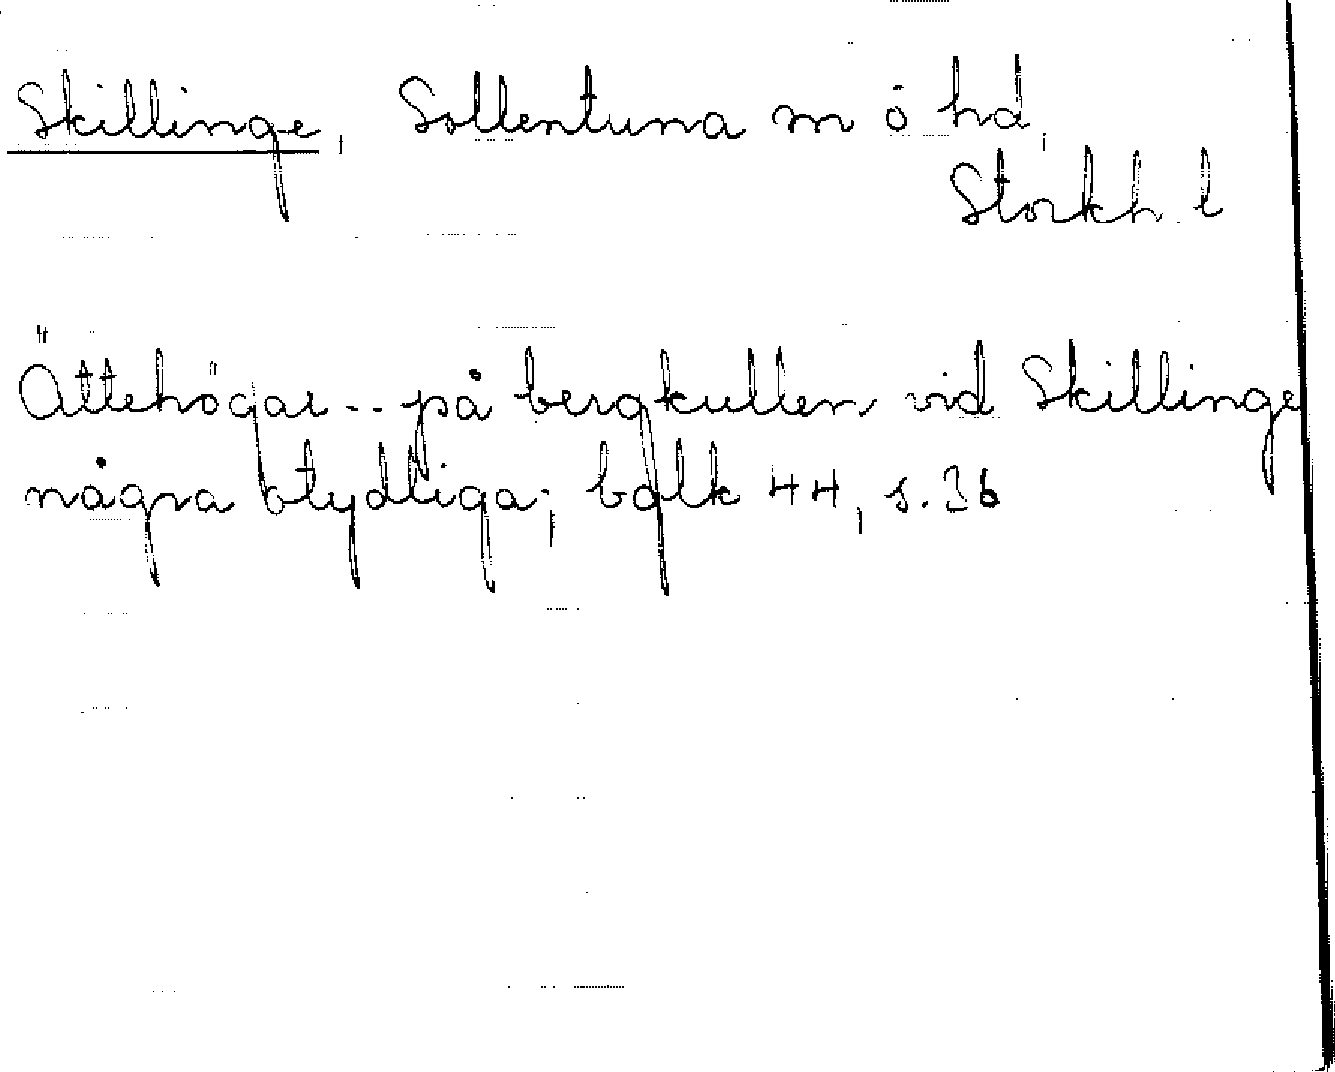 Skillinge, Sollentuna sn ö hd,
Stockh. l
Ättehögar -- på bergkullen vid Skillinge
några otydliga; balk 44, s. 36